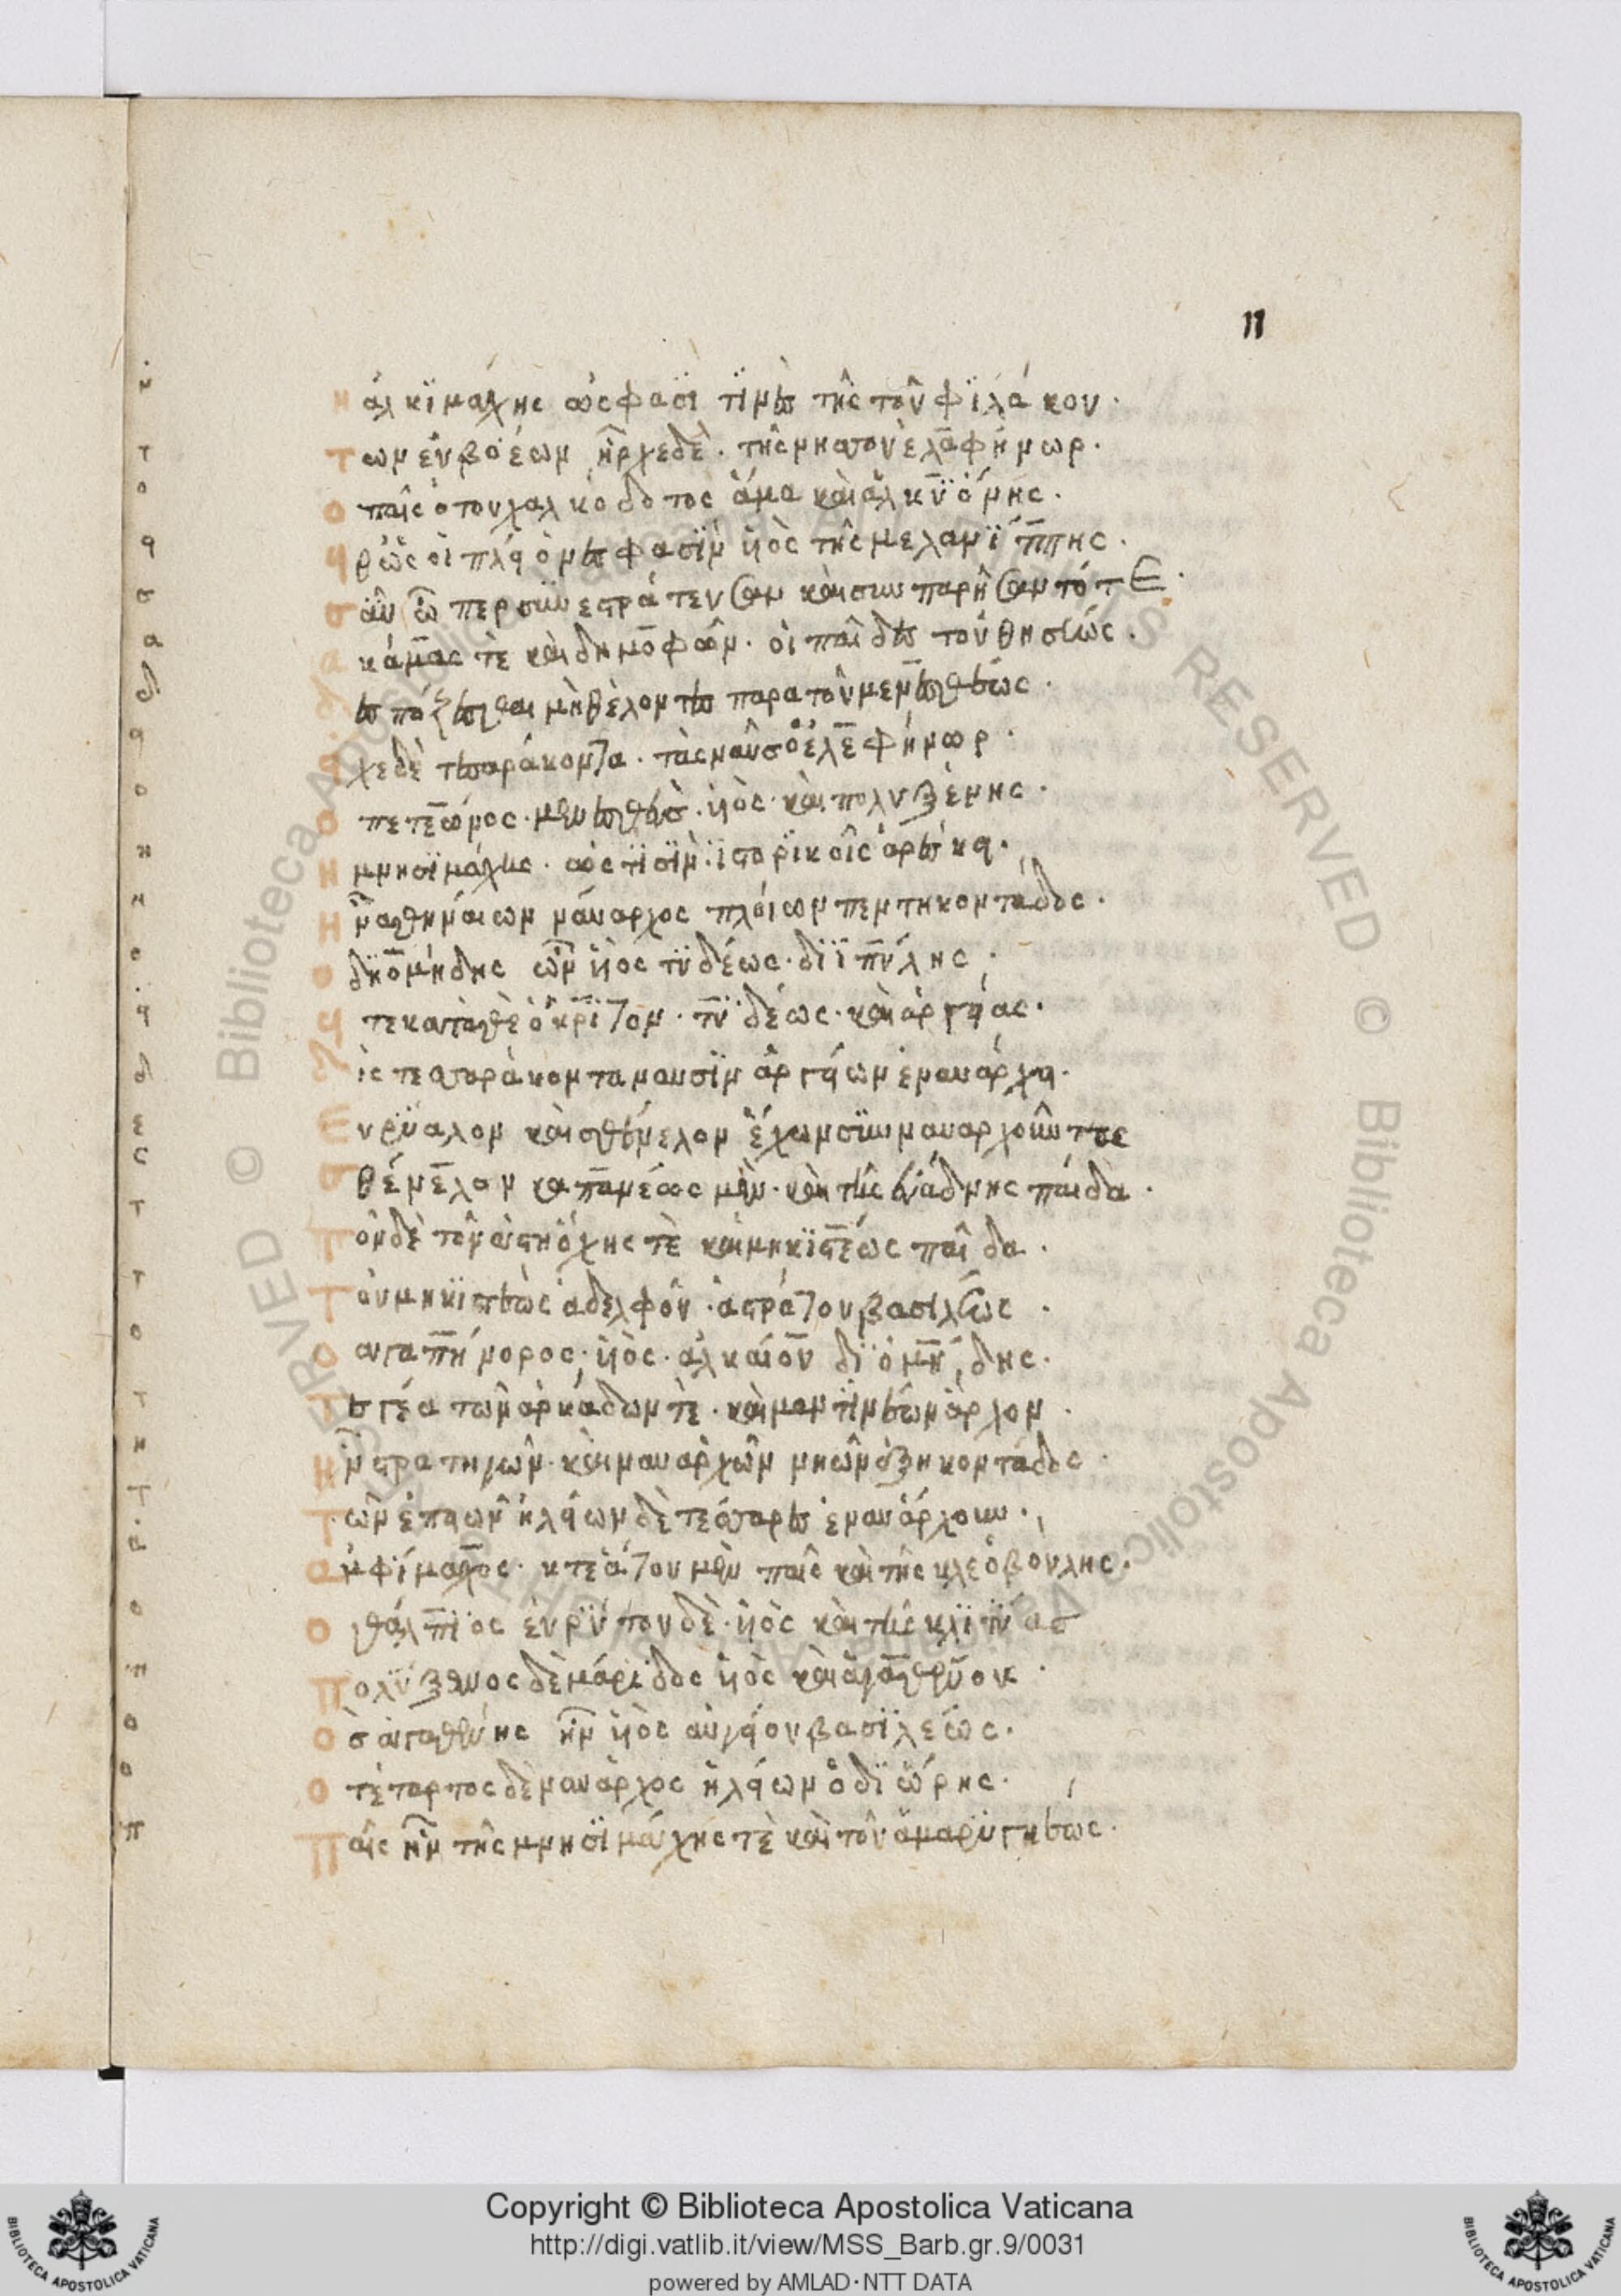 11
ἢ ἀλκιμάχης ὡς φασί τινες τῆς τοῦ φιλάκου.
τῶν εὐβοέων ἦρχε δὲ. τῆς νήσου ἐλεφήνωρ.
ὁ παῖς ὁ τοῦ χαλκόδοντος ἅμα καὶ ἀλκυόνης.
εἰθ ὡς οἱ πλείονες φασὶν υἱὸς τῆς μελανίππης.
σὺν ᾧπερ συνεστράτευσαν καὶ συμπαρῆσαν τότε.
ἀκάμας τὲ καὶ δημοφῶν. οἱ παῖδες τοῦ θησέως.
δεσπόζεσθαι μὴ θέλοντες παρὰ τοῦ μενεσθέως.
εἶχε δὲ τεσσαράκοντα. τὰς ναῦς ὁ ἐλεφήνωρ.
ὁ πετεῶνος. μενεσθεὺς. υἱὸς. καὶ πολυξένης.
ἢ μνησιμάχης. ὡς τισὶν ἱστορικοῖς ἀρέσκει.
ἦν ἀθηναίων ναύαρχος πλοίων πεντήκοντα δὲ.
ὁ διομήδης ὢν υἱὸς τυδέως. διιπύλης.
εἴτε κατὰ θεόκριτον. τυδέως. καὶ ἀργείας.
δὶς τεσσαράκοντα ναυσὶν ἀργείων ἐναυάρχει.
εὐρύαλον καὶ σθένελον ἔχων συνναυαρχοῦντας
σθένελον καπανέως μὲν. καὶ τῆς εὐάδνης παῖδα.
τὸν δὲ τὸν ἀστηόχης τὲ καὶ μηκιστέως παῖδα.
τοῦ μηκιστέως ἀδελφοῦ. ἀδράστου βασιλέως.
ὁ ἀγαπήνορος. υἱὸς. ἀλκαίου διομήδης.
τεγέα τῶν ἀρκάδων τὲ. καὶ μαντινέων ἄρχον.
ἦν στρατηγῶν. καὶ ναυαρχῶν νηῶν ἑξήκοντα δὲ.
τῶν ἐπειῶν ἠλείων δὲ τέσσαρες ἐναυάρχουν.
ἀμφίμαχος. κτεάτου μὲν παῖς καὶ τῆς κλεοβούλης.
ὁ θάλπιος εὐρύτου δὲ. υἱὸς καὶ τῆς κλιτύας
πολύξενος δὲ νάριδος υἱὸς καὶ ἀγασθένους
ὃς ἀγασθένης ἦν υἱὸς αὐγείου βασιλέως.
ὁ τέταρτος δὲ ναύαρχος ἠλείων ὁ διώρης.
παῖς ἦν τῆς μνησιμάχης τὲ καὶ τοῦ ἀμαρυγκέως.
Copyright © Biblioteca Apostolica Vaticana
http://digi.vatlib.it/view/MSS_Barb.gr.9/0031
powered by AMLAD·NTT DATA